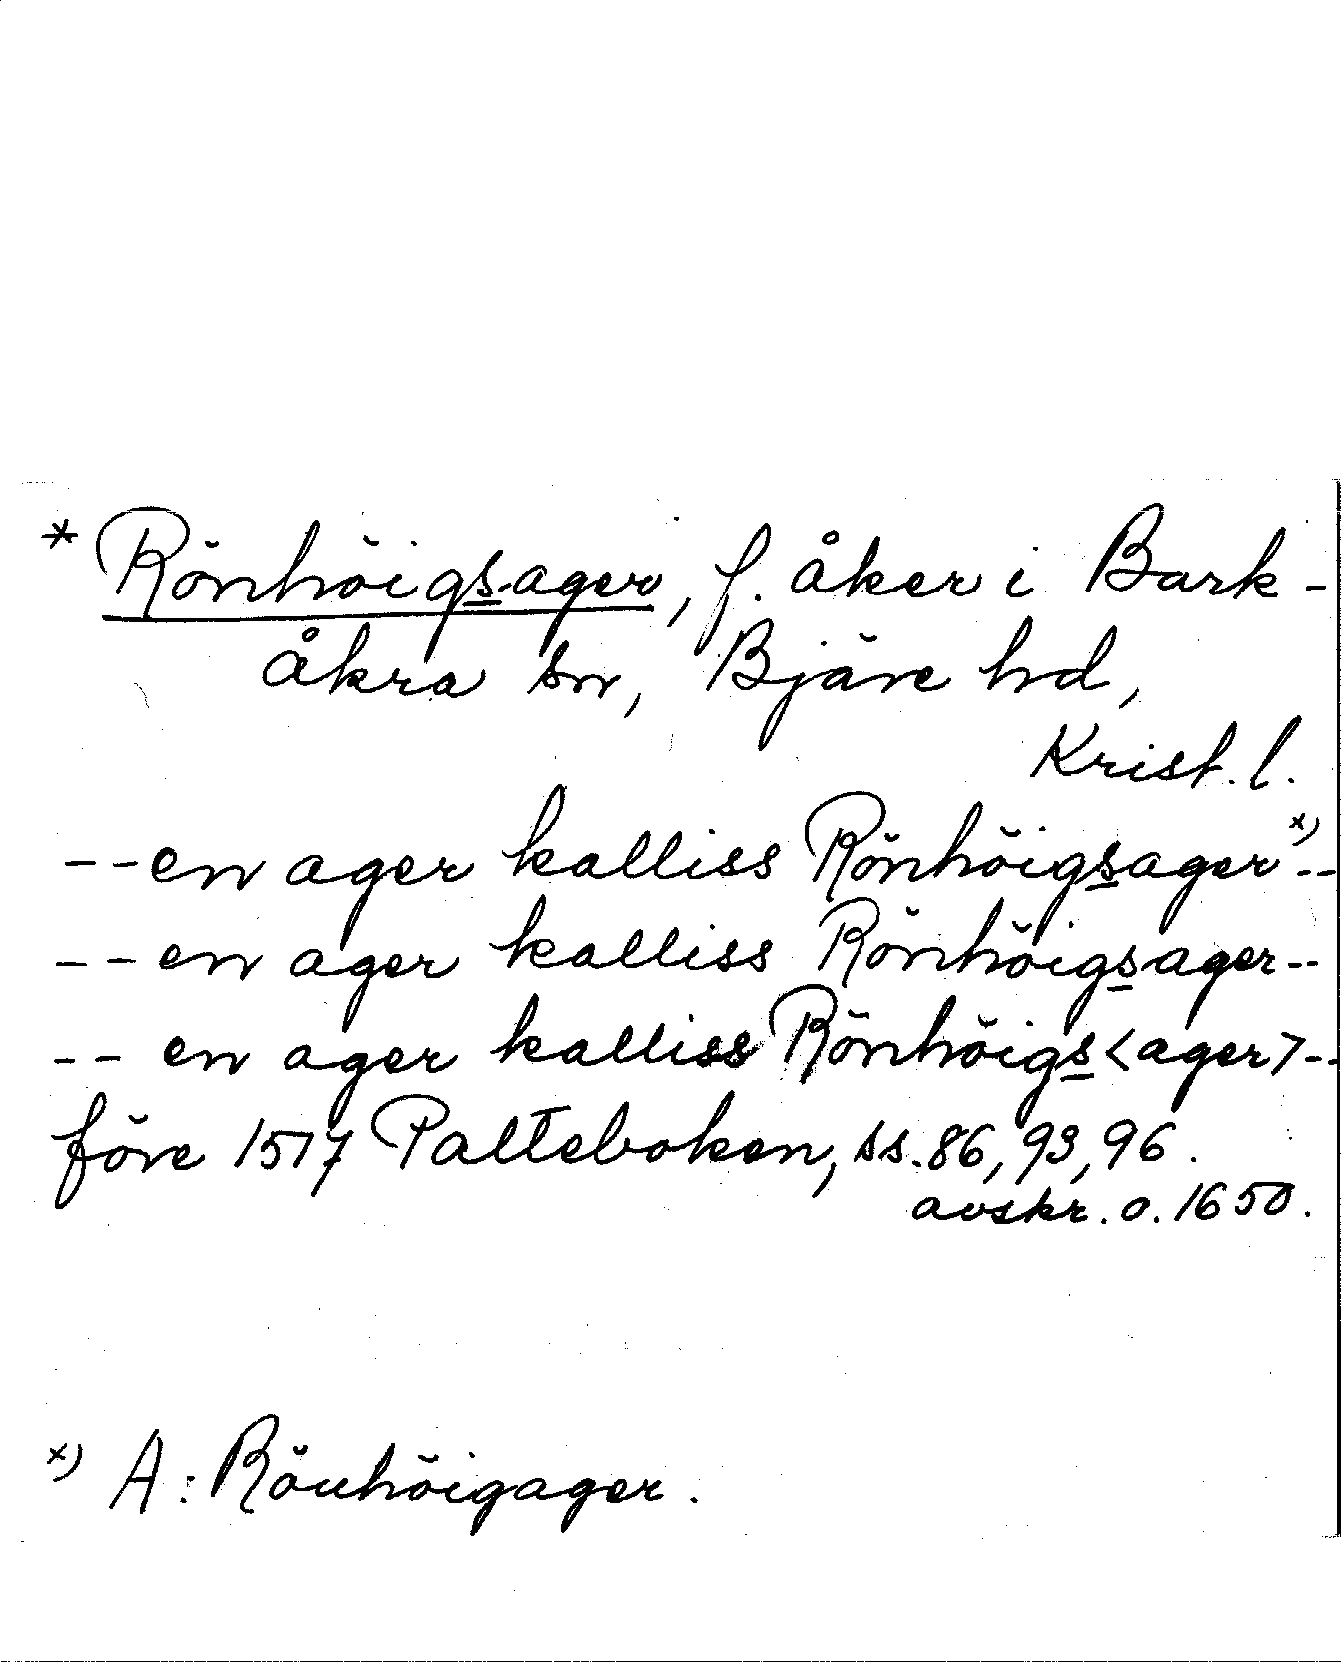 * Rönhöigsager, f. åker i Bark-
åkra sn, Bjäre hd,
Krist. l.
--en ager kalliss Rönhöigsager x) --
--en ager kalliss Rönhöigsager--
-- en ager kalliss Rönhöigs<ager>--
före 1517 Palteboken, ss. 86, 93, 96.
avskr. o. 1650.
x) A: Röuhöigager.